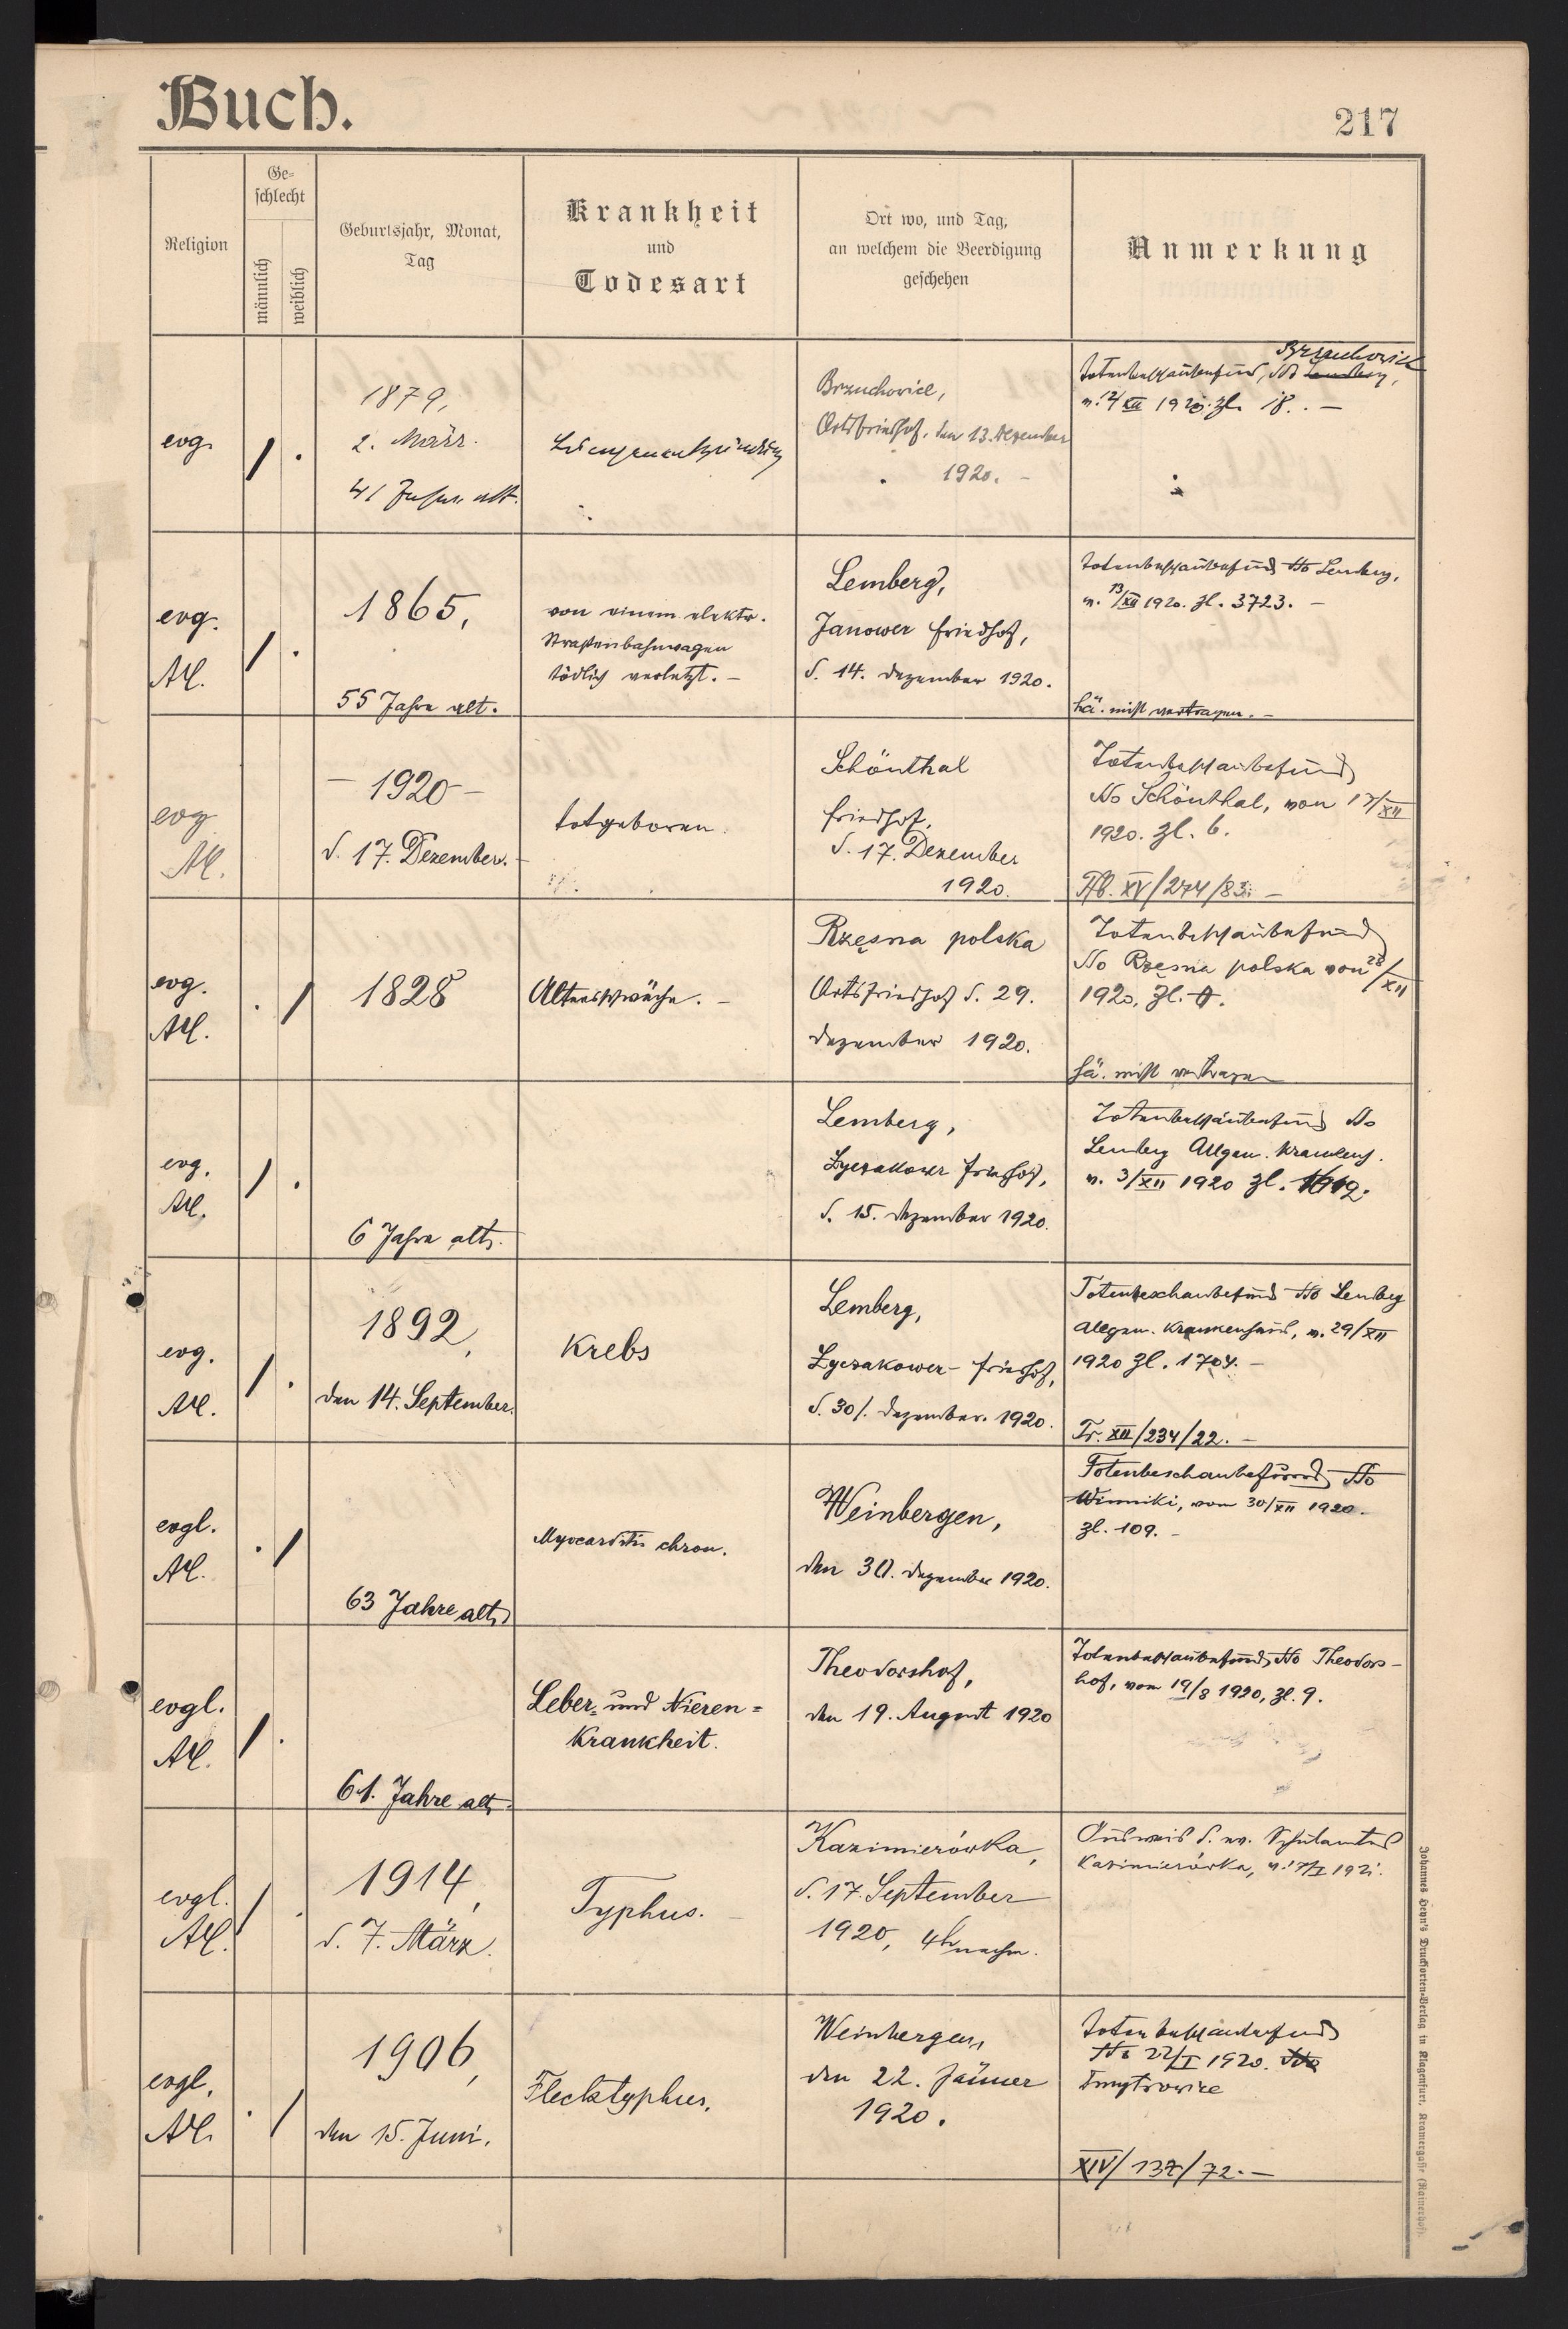 Buch.
217
Religion
Ge-
schlecht
männlich
weiblich
Geburtsjahr, Monat,
Tag
Krankheit
und
Todesart
Ort wo, und Tag,
an welchem die Beerdigung
geschehen
Anmerkung
evg.
1879,
2. März.
41 Jahre alt.
Lungenentzündung
Brzuchovice,
Ortsfriedhof, den 13. Dezember
1920. -
Brzuchovice
Totenbeschaubefund, Lemberg,
1920. Zl. 18. . -
evg.
AC.
1865,
55 Jahre alt.
von einem elektr.
Straßenbahnwagen
tödlich verletzt. -
Lemberg,
Janower Friedhof,
d. 14. Dezember 1920.
Totenbeschaubefund Lemberg,
v. 13/XII 1920. Zl. 3723. -
nicht vertragen. -
evg
AC.
- 1920 -
d. 17. Dezember. -
totgeboren.
Schönthal
Friedhof,
d. 17. Dezember
1920.
Totenbeschaubefund
Schönthal, von 17/XII
1920. Zl. 6.
XV/274/83. -
evg.
AC.
1828
Altersschwäche. -
Rzęsna polska
Ortsfriedhof d. 29.
Dezember 1920.
Totenbeschaubefund
Rzęsna polska von 28/XII
1920, Zl.
nicht vertragen
evg.
AC.
6 Jahre alt.
Lemberg,
Lyczakower Friedhof,
d. 15. Dezember 1920.
Totenbeschaubefund
Lemberg Allgem. Krankenh.
v. 3/XII 1920 Zl.
evg.
AC.
1892,
den 14. September.
Krebs
Lemberg,
Lyczakower- Friedhof,
d. 30/. Dezember. 1920.
Totenbeschaubefund Lemberg
Allgem. Krankenhaus, v. 29/XII
1920 Zl. 1704. -
Tr. XII/234/22. -
evgl.
AC.
63 Jahre alt,
Myocarditis chron.
Weinbergen,
den 30. Dezember 1920.
Totenbeschaubefund
Winniki, vom 30/XII 1920.
Zl. 109. -
evgl.
AC.
61. Jahre alt.
Leber- und Nieren=
krankheit.
Theodorshof,
den 19. August 1920
Totenbeschaubefund, Theodors-
hof, vom 19/8 1920, Zl. 9.
evgl.
AC.
1914,
d. 7. März.
Typhus. -
Kazimierówka,
d. 17. September
1920, 4h nachm.
Ausweis d. ev. Schulamtes
Kazimierówka,
evgl.
AC.
1906,
den 15. Juni.
Flecktyphus.
Weinbergen,
den 22. Jänner
1920.
Totenbeschaubefund
22/I 1920.
Dmytrowice
XIV/137/72. -
Johannes Heyn's Drucksorten-Verlag in Klagenfurt, Kramergasse (Rainerhof).